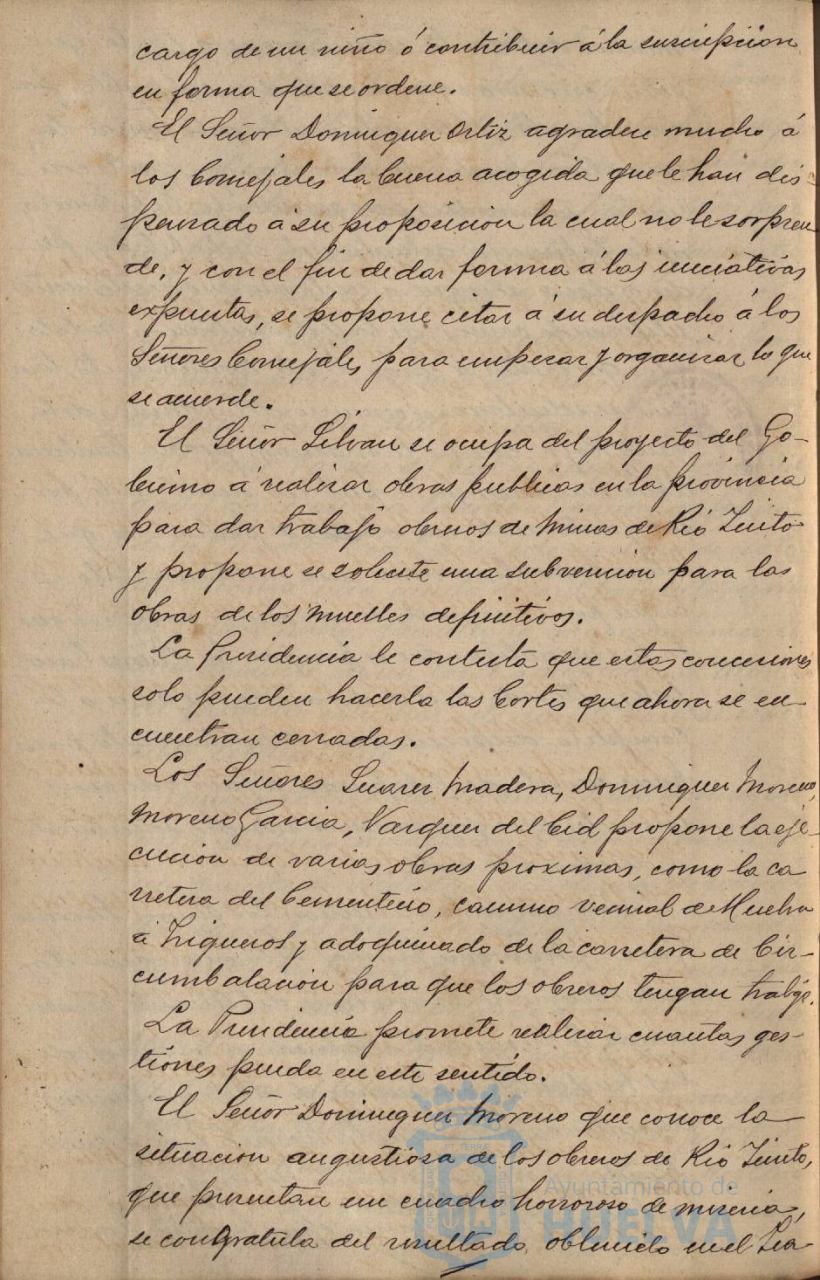 cargo de un niño ó contribuir á la suscripcion
en forma que se ordene.
El Señor Dominguez Ortiz agradece mucho á
los Concejales la buena acogida que le han dis-
pensado á su proposicion la cual no le sorpren
de, y con el fin de dar forma á las iniciativas
expuestas, se propone citar á su despacho á los
Señores Concejales, para empezar y organizar lo que
se acuerde.
El Señor Silvan se ocupa del proyecto del Go-
bierno á realizar obras publicas en la provincia
para dar trabajo obreros de Minas de Rio Tinto
y propone se solicite una subvencion para las
obras de los muelles definitivos.
La Presidencia le contesta que estas concesiones
solo pueden hacerla las Cortes que ahora se en
cuentran cerradas.
Los Señores Suarez Madera, Dominguez Moreno,
Moreno Garcia, Vazquez del Cid propone la eje-
cucion de varias obras proximas, como la ca
rretera del Cementerio, camino vecinal de Huelva
á Trigueros y adoquinado de la carretera de Cir-
cumbalacion para que los obreros tengan trabajo.
La Presidencia promete realizar cuantas ges-
tiones pueda en este sentido.
El Señor Dominguez Moreno que conoce la
situacion angustiosa de los obreros de Rio Tinto,
que presentan un cuadro horroroso de miseria,
se congratula del resultado obtenido en el Tea-
Ayuntamiento de
HUELVA